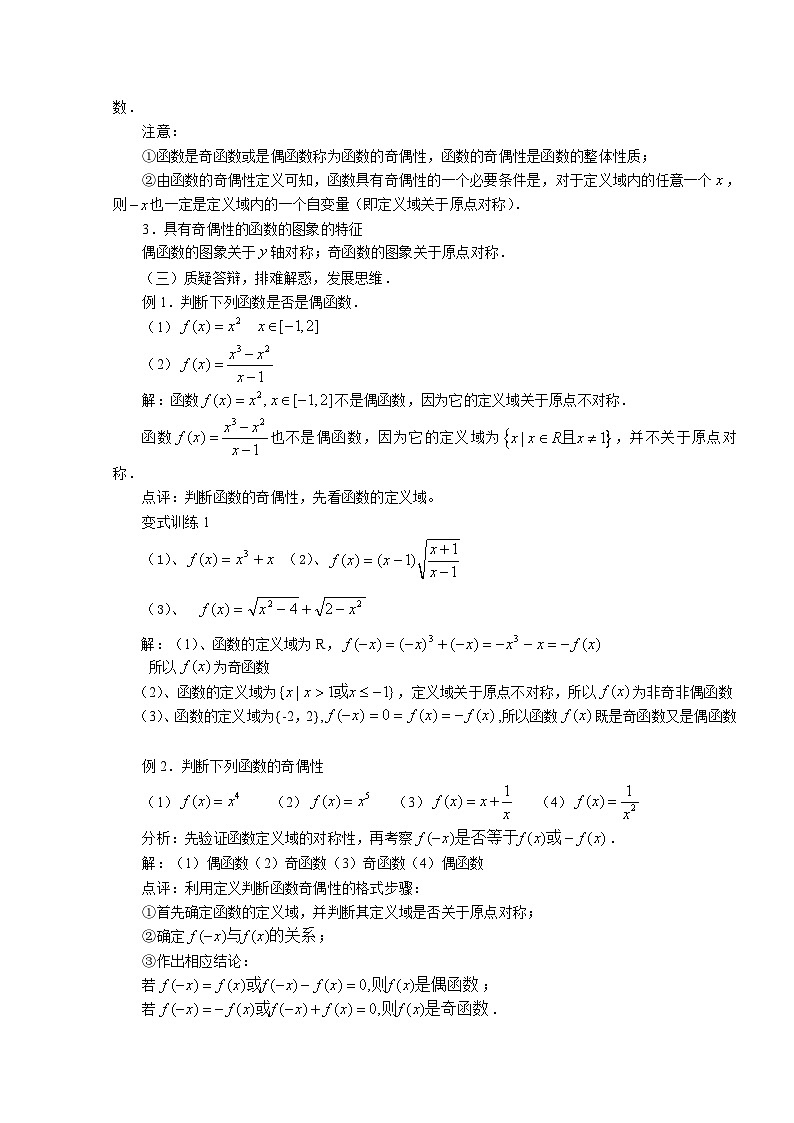 数.
注意：
①函数是奇函数或是偶函数称为函数的奇偶性，函数的奇偶性是函数的整体性质；
②由函数的奇偶性定义可知，函数具有奇偶性的一个必要条件是，对于定义域内的任意一个 x，
则 −x也一定是定义域内的一个自变量（即定义域关于原点对称）.
3．具有奇偶性的函数的图象的特征
偶函数的图象关于 y 轴对称；奇函数的图象关于原点对称．
（三）质疑答辩，排难解惑，发展思维．
例 1．判断下列函数是否是偶函数．
（1）f(x) = x² x∈[−1,2]
（2）f(x) = (x³ − x²)/(x − 1)
解：函数 f(x) = x², x∈[−1,2]不是偶函数，因为它的定义域关于原点不对称．
函数 f(x) = (x³ − x²)/(x − 1) 也不是偶函数，因为它的定义域为 {x | x∈R且x ≠ 1}，并不关于原点对
称．
点评：判断函数的奇偶性，先看函数的定义域。
变式训练 1
（1）、f(x) = x³ + x （2）、f(x) = (x−1)√((x+1)/(x−1))
（3）、 f(x) = √(x² − 4) + √(2 − x²)
解：（1）、函数的定义域为 R，f(−x) = (−x)³ + (−x) = −x³ − x = −f(x)
所以 f(x) 为奇函数
（2）、函数的定义域为 {x | x > 1或x ≤ −1}，定义域关于原点不对称，所以 f(x) 为非奇非偶函数
（3）、函数的定义域为{-2，2}, f(−x) = 0 = f(x) = −f(x) ,所以函数 f(x) 既是奇函数又是偶函数
例 2．判断下列函数的奇偶性
（1）f(x) = x⁴ （2）f(x) = x⁵ （3）f(x) = x + 1/x （4）f(x) = 1/x²
分析：先验证函数定义域的对称性，再考察 f(−x)是否等于f(x)或−f(x)．
解：（1）偶函数（2）奇函数（3）奇函数（4）偶函数
点评：利用定义判断函数奇偶性的格式步骤：
①首先确定函数的定义域，并判断其定义域是否关于原点对称；
②确定 f(−x)与f(x)的关系；
③作出相应结论：
若 f(−x) = f(x)或f(−x) − f(x) = 0,则f(x)是偶函数；
若 f(−x) = −f(x)或f(−x) + f(x) = 0,则f(x)是奇函数．